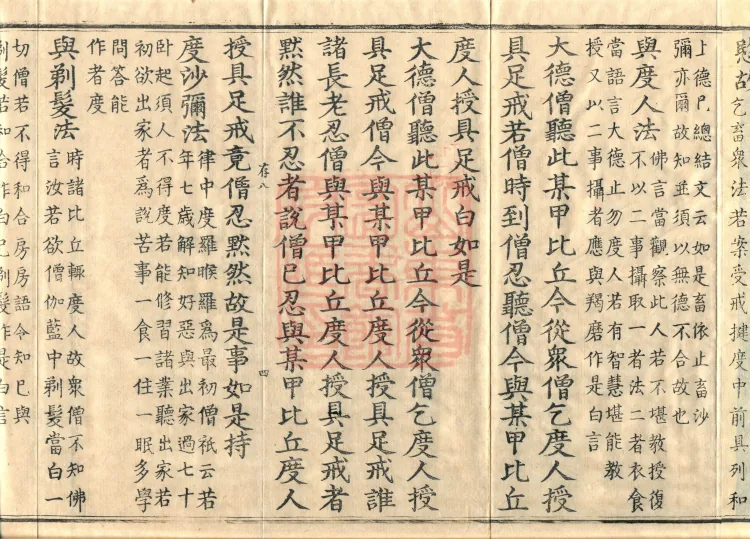 故乞畜衆法若案受戒揵度中前具列和
上德巳總結文云如是畜依止畜沙
彌亦爾故知並須以無德不合故也
與度人法 佛言當觀察此人若不堪教授復
不以二事攝取一者法二者衣食
當語言大德止勿度人若有智慧堪能教
授又以二事攝者應與羯磨作是白言
大德僧聽此某甲比丘今從衆僧乞度人授
具足戒若僧時到僧忍聽僧今與某甲比丘
度人授具足戒白如是
大德僧聽此某甲比丘今從衆僧乞度人授
具足戒僧今與某甲比丘度人授具足戒誰
諸長老忍僧與某甲比丘度人授具足戒者
默然誰不忍者說僧巳忍與某甲比丘度人
存八 四
授具足戒竟僧忍默然故是事如是持
度沙彌法 律中度羅睺羅爲最初僧祇云若
年七歲解知好惡與出家過七十
臥起須人不得度若能修習諸業聽出家若
初欲出家者爲說苦事一食一住一眠多學
問答能
作者度
與剃髮法 時諸比丘輒度人故衆僧不知佛
言汝若欲僧伽藍中剃髮當白一
切僧若不得和合房房語令知巳與
剃髮若和合作白巳剃髮作是白言